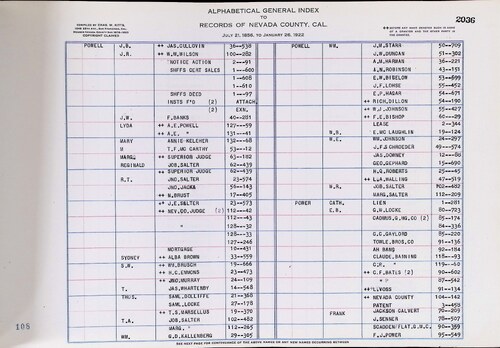 ALPHABETICAL GENERAL INDEX
TO
RECORDS OF NEVADA COUNTY, CAL.
JULY 21, 1856, TO JANUARY 26, 1922
COPYRIGHT CLAIMED
2036
POWELL J.B. ++ JAS. CULLOVIN 36--538
J.R. ++ W.W. WILSON 100--282
NOTICE ACTION 2---91
SHFFS CERT SALES 1--600
1--608
1--610
SHFFS DEED 1---97
INSTS F'D (2) ATTACH.
(2) EXN.
J.W. F. BANKS 40--281
LYDA ++ A.E. POWELL 127---59
++ A.E. " 131---41
MARY ANNIE KELEHER 132---68
M T.F. MC CARTHY 53---12
MARG. ++ SUPERIOR JUDGE 63--182
REGINALD JOB. SALTER 62--439
++ SUPERIOR JUDGE 62--439
R.T. JNO. SALTER 23-574
JNO. JACKA 56-143
++ N. BRUST 17--405
++ J.E. SALTER 23--573
++ NEV. CO. JUDGE (2) 112--42
112--43
" 128---32
128---33
127--246
MORTGAGE 10--431
SYDNEY ++ ALBA BROWN 33--559
S.W. ++ WM. BRUSCH 19--666
++ H.C. EMMONS 23--473
++ JNO. MURRAY 24--109
T. JAS. WHARTENBY 14--548
THOS. SAML. DOLLIFF 21-368
SAML. LOCKE 27--178
++ T.S. MARSELLUS 19--370
T.A. JOB. SALTER 102--482
MARG. " 112--265
WM. G.D. KALLENBERG 29--305
POWELL WM. J.W. STARR 50--709
J.W. DUNCAN 51--302
A.W. HARWAN 36--221
A.N. ROBINSON 43--151
E.W. BIGELOW 53--699
J.F. LOHSE 55--452
E.P. HAGAR 54--671
++ RICH. DILLON 54--190
++ W.I. JOHNSON 55--427
++ F.E. BISHOP 66---29
LEASE 2--344
W.B. E. MC LAUGHLIN 19--124
W.E. WM. JOHNSON 24--297
J.F.J SCHROEDER 49--574
JAS. DOWNEY 12---88
GEO. GEPHARD 15--690
H.G. ROBERTS 25---45
++ L.A. WALLING 47--519
W.R. JOB. SALTER 102--482
MARG. SALTER 112--209
POWER CATH. LIEN 1--281
E.B. G.N. LOCKE 80--723
CADMUS, G. WG. CO (2) 85--174
84--336
G.C. GAYLORD 85--220
TOWLE, BROS. CO 91--136
AH BANG 92--184
CLAUDE. BAINING 118--93
C.R. " 119--50
++ C.F. BATLS (2) 90--602
++ " 87--542
++ L. VOSS 91--134
++ NEVADA COUNTY 104--142
PATENT 3--458
FRANK JACKSON CALVERT 70--209
J. SENNER 78--507
SCADDEN, FLAT, G.M.C. 90--359
F.J. POWER 95--549
108